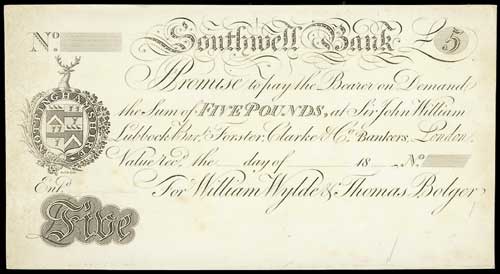 No. Southwell Bank £5
I Promise to pay the Bearer on Demand
the Sum of FIVE POUNDS, at Sir John William
Lubbock Bart. Forster, Clarke & Co. Bankers, London.
Value recd. the day of 18 No.
NOTTINGHAMSHIRE
Entd.
For William Wylde & Thomas Bolger
Five